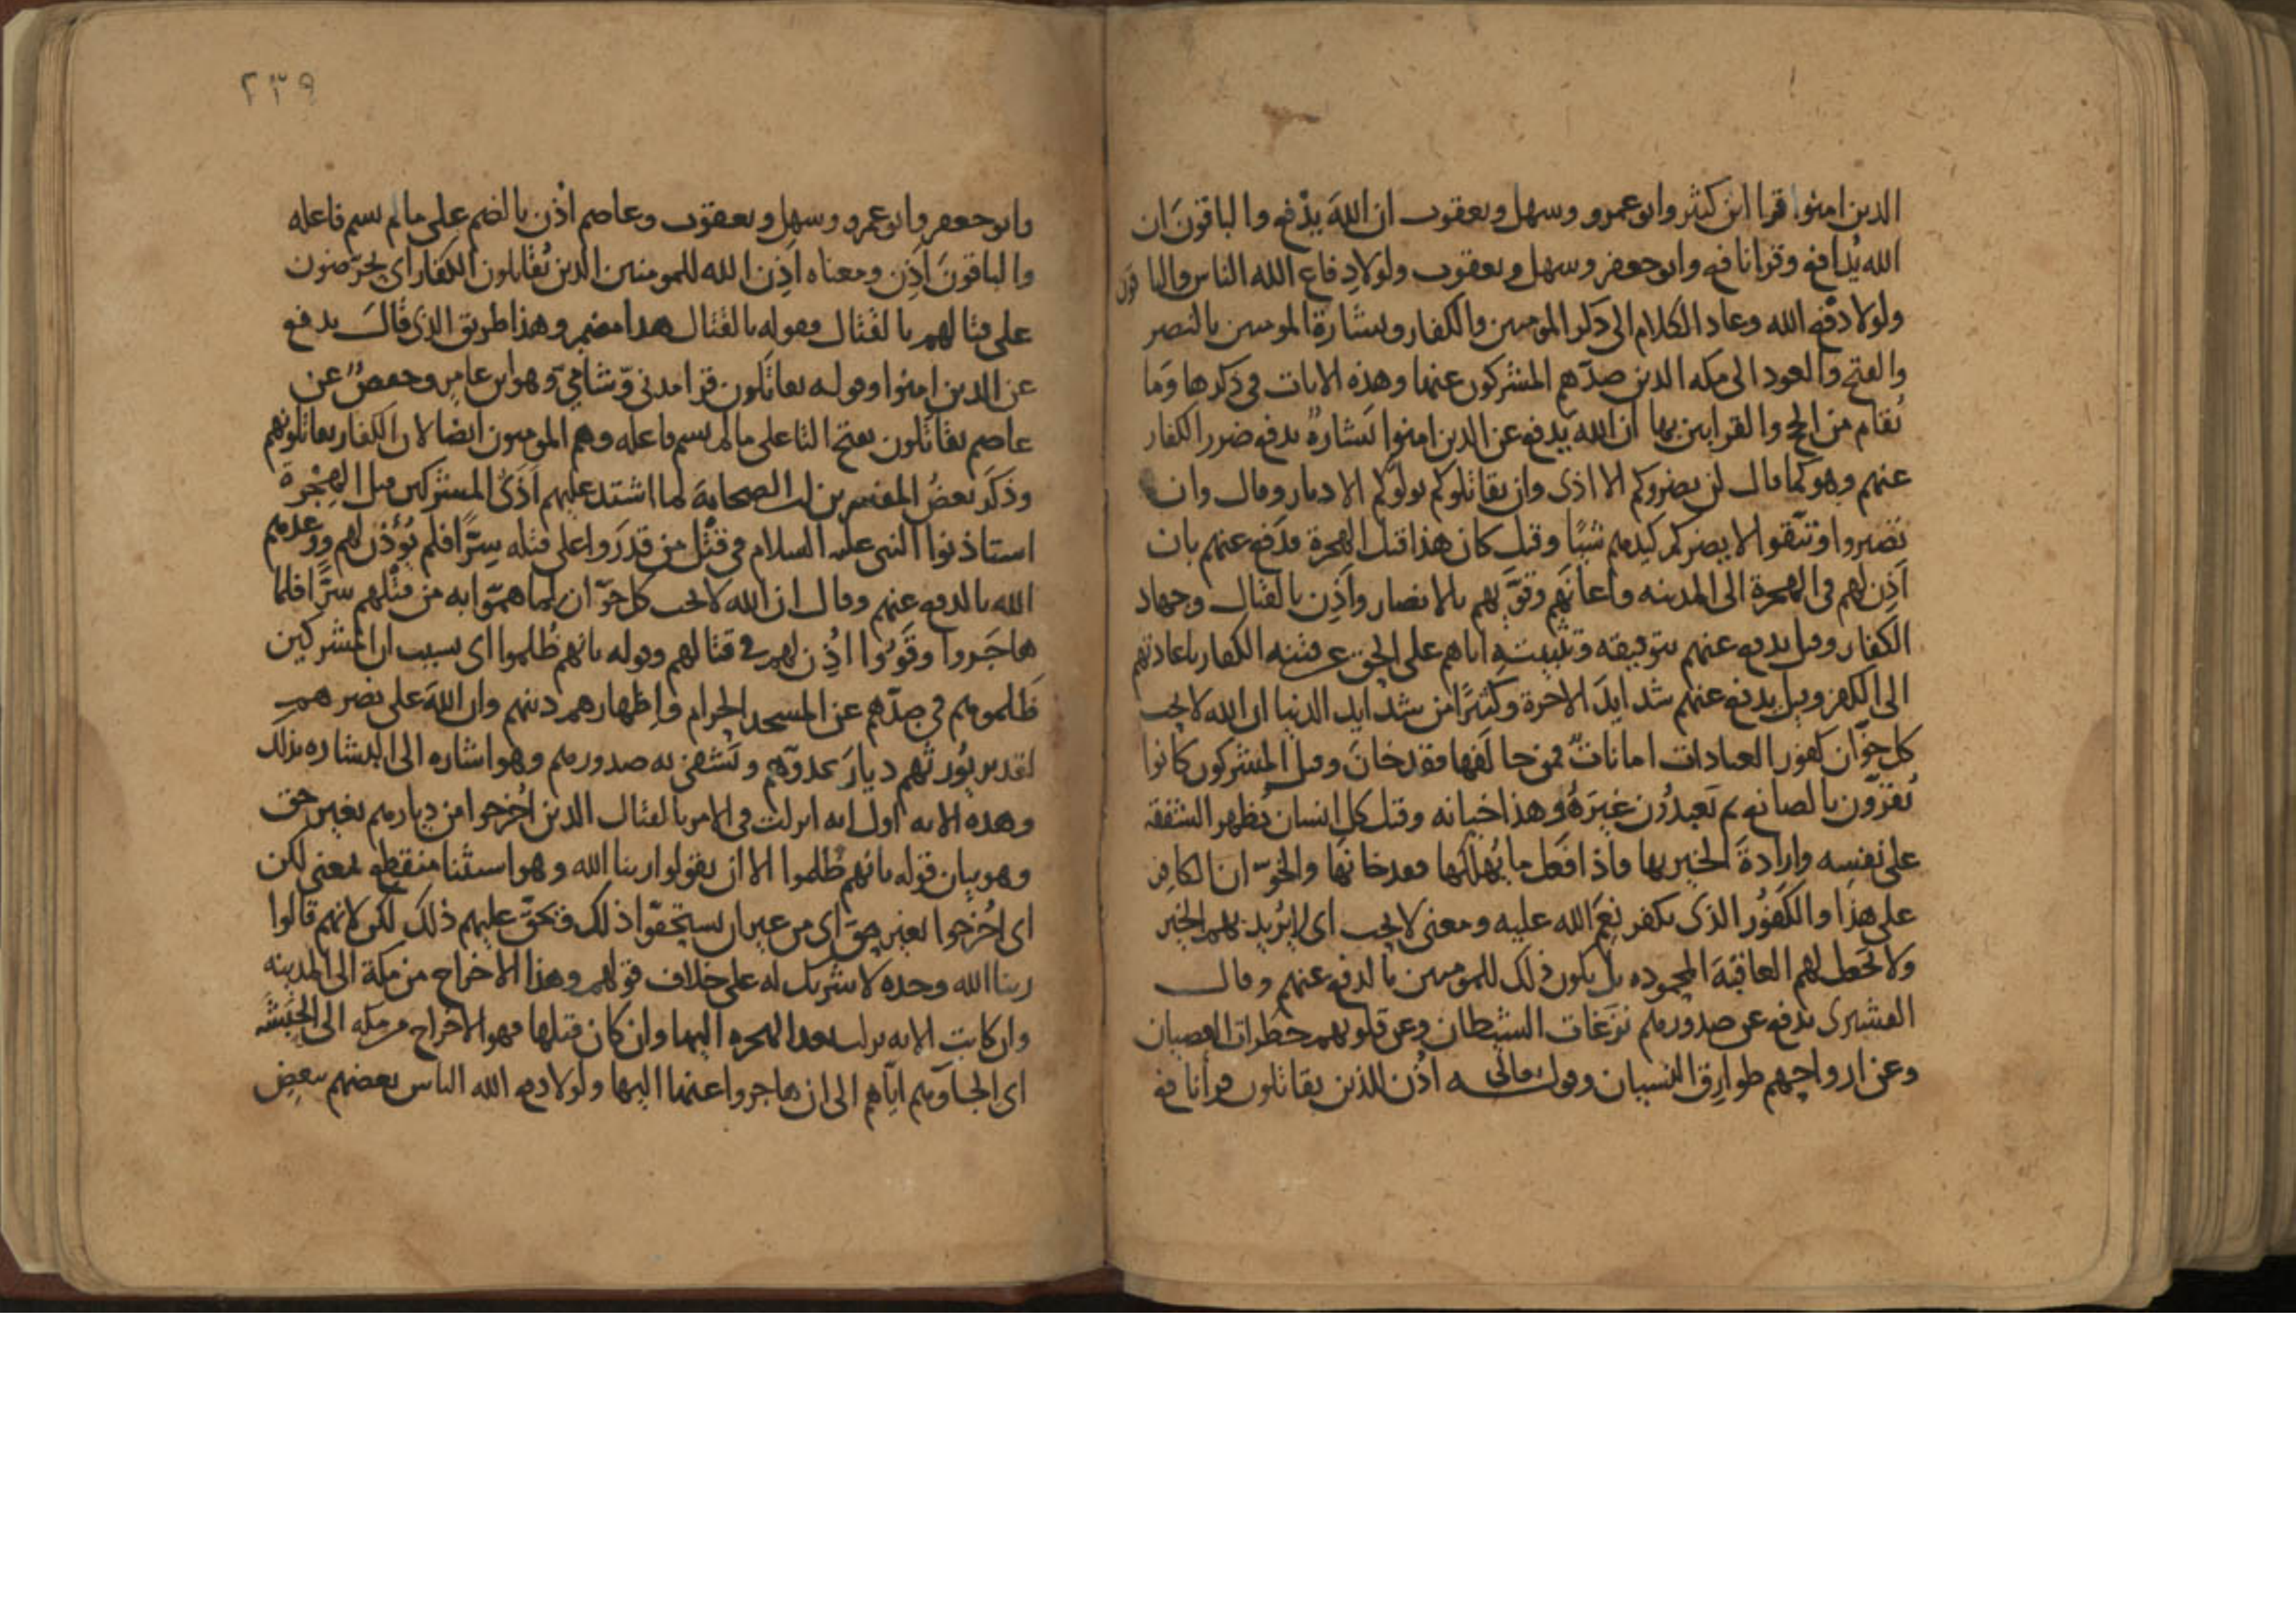 الذين امنوا قرا ابن كثير وابو عمرو وسهل ويعقوب ان الله يدفع والباقون ان
الله يدافع وقرا نافع وابو جعفر وسهل ويعقوب ولولا دفاع الله الناس والباقون
ولولا دفع الله وعاد الكلام الى ذكر المومنين والكفار وبشارة المومنين بالنصر
والفتح والعود الى مكه الذين صدهم المشركون عنها وهذه الايات في ذكرها وما
يقام من الحج والقرابين بها ان الله يدفع عن الذين امنوا بشارة بدفع ضرر الكفار
عنهم وهو كما قال لن يضروكم الا اذى وان يقاتلوكم يولوكم الادبار وقال وان
تصبروا وتتقوا لا يضركم كيدهم شيا وقيل كان هذا قبل الهجرة فدفع عنهم بان
اذن لهم في الهجرة الى المدينه واعانهم وقوّاهم بالانصار واذن بالقتال وجهاد
الكفار وقيل يدفع عنهم بتوفيقه وتثبيته اياهم على الحق عن فتنه الكفار باعادتهم
الى الكفر وقيل يدفع عنهم شدايد الاخرة وكثيرا من شدايد الدنيا ان الله لا يحب
كل خوّان كفور العبادات امانات فمن خالفها فقد خان وقيل المشركون كانوا
يقرّون بالصانع ثم يعبدون غيره وهذا خيانه وقيل كل انسان يظهر الشفقه
على نفسه وارادة الخير بها واذا فعل ما يهلكها فقد خانها والخوّان الكافر
على هذا والكفور الذي يكفر نعم الله عليه ومعنى لا يحب اي لا يريد بهم الخير
ولا يجعل لهم العاقبة المحموده بل يكون ذلك للمومنين بالدفع عنهم وقال
القشيري يدفع عن صدورهم نزغات الشيطان وعن قلوبهم خطرات العصيان
وعن ارواحهم طوارق النسيان وقوله تعالى اذن للذين يقاتلون قرأ نافع
٢٣٩
وابو جعفر وابو عمرو وسهل ويعقوب وعاصم اذن بالضم على ما لم يسم فاعله
والباقون اذن ومعناه اذن الله للمومنين الذين يقاتلون الكفار اي يحرّضون
على قتالهم بالقتال وقوله بالقتال هذا مضمر وهذا طريق الذي قال يدفع
عن الذين امنوا وقوله يقاتلون قرا مدني وشامي وهو ابن عامر وحفص عن
عاصم يقاتلون بفتح التا على ما لم يسم فاعله وهم المومنون ايضا لان الكفار يقاتلونهم
وذكر بعض المفسرين ان الصحابة لما اشتد عليهم اذى المشركين قبل الهجرة
استاذنوا النبي عليه السلام في قتل من قدروا على قتله سرّا فلم يؤذن لهم ووعدهم
الله بالدفع عنهم وقال ان الله لا يحب كل خوّان لما همّوا به من قتلهم سرّا فلما
هاجروا وقووا اذن لهم في قتالهم وقوله بانهم ظلموا اي بسبب ان المشركين
ظلموهم في صدّهم عن المسجد الحرام واظهارهم دينهم وان الله على نصرهم
لقدير يورثهم ديار عدوّهم وتشفى به صدورهم وهو اشاره الى البشاره بذلك
وهذه الايه اول ايه انزلت في الامر بالقتال الذين اخرجوا من ديارهم بغير حق
وهو بيان قوله بانهم ظلموا الا ان يقولوا ربنا الله وهو استثنا منقطع بمعنى لكن
اي اخرجوا بغير حق اي من غير ان يستحقّوا ذلك فيحقّ عليهم ذلك لكن لانهم قالوا
ربنا الله وحده لا شريك له على خلاف قولهم وهذا الاخراج من مكة الى المدينه
وان كانت الايه نزلت بعد الهجره اليها وان كان قبلها فهو الاخراج من مكه الى الحبشه
اي الجاوهم اياهم الى ان هاجروا عنها اليها ولولا دفع الله الناس بعضهم ببعض